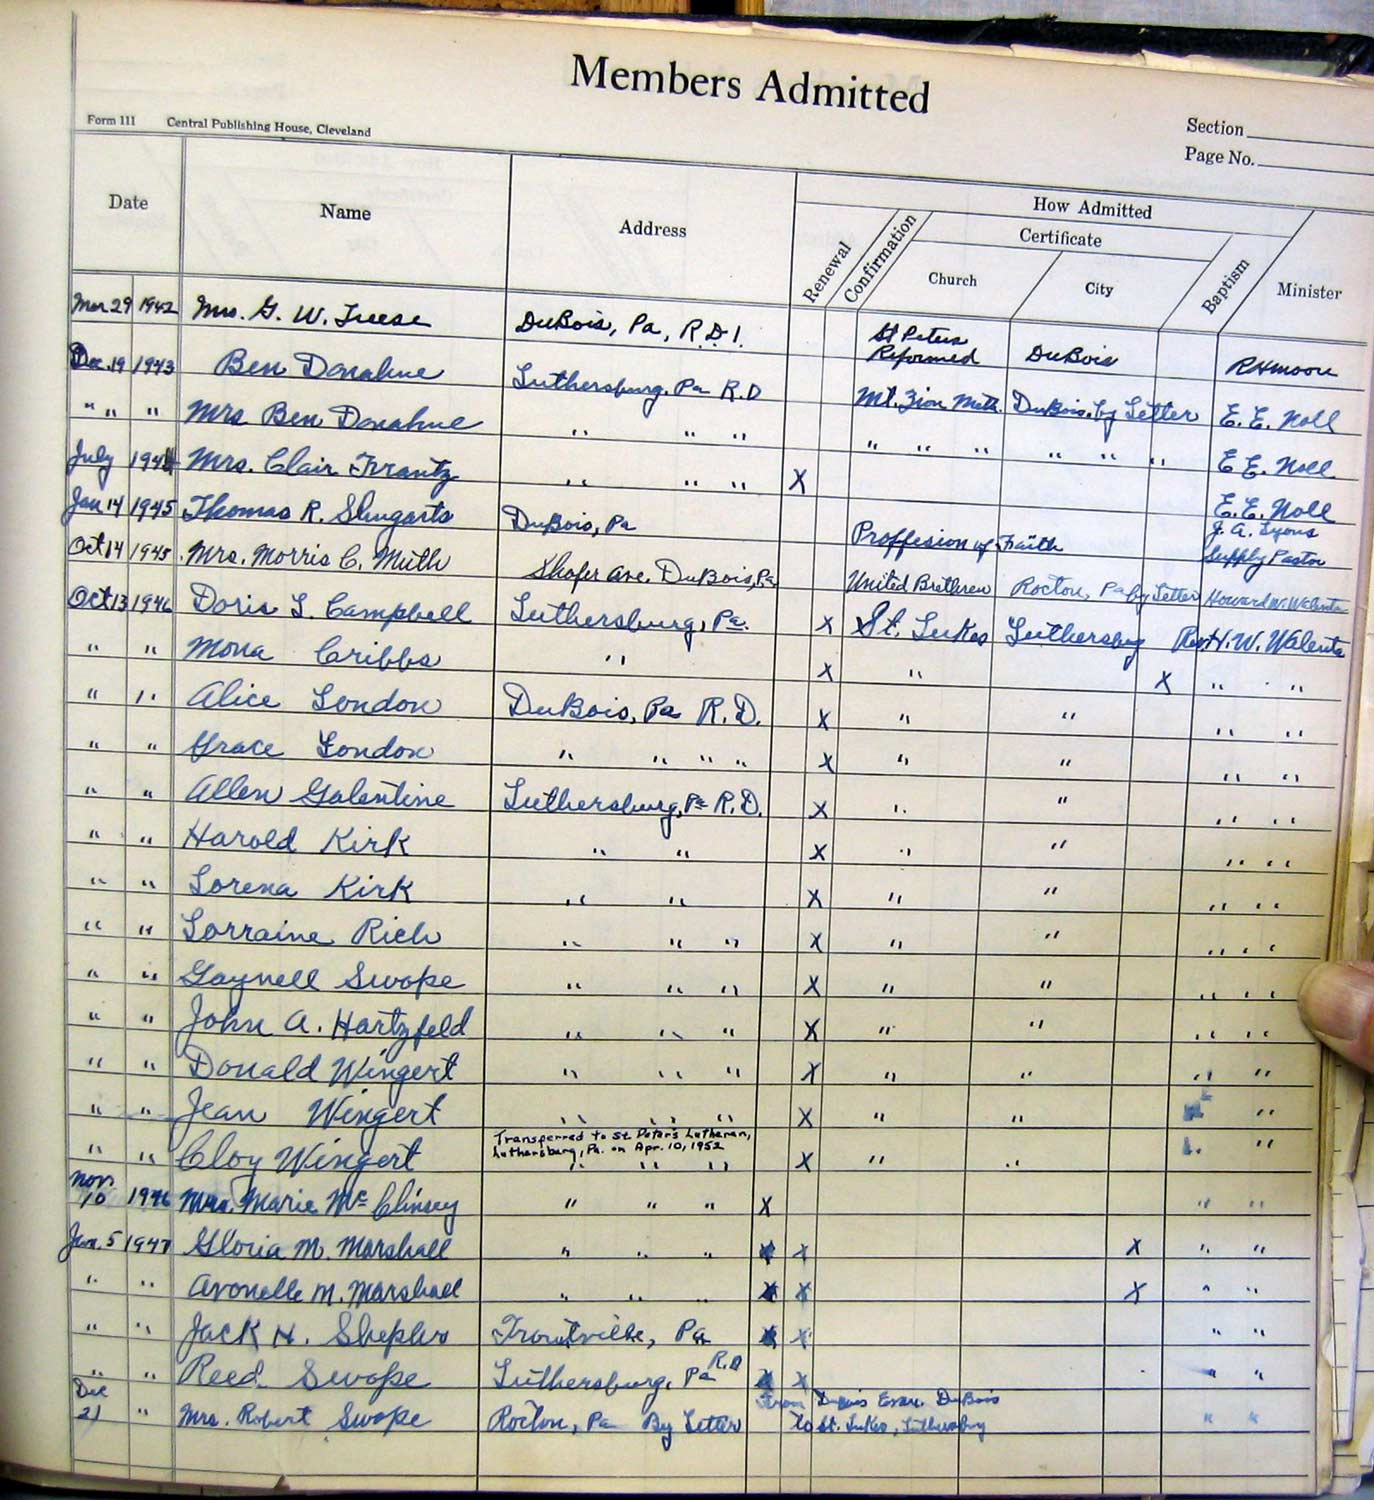 Members Admitted
Form 111 Central Publishing House, Cleveland
Section
Page No.
Date Name Address Renewal Confirmation How Admitted
Certificate
Church City Baptism Minister
Mar 29 1942 Mrs. G. W. Treese DuBois, Pa, R.D 1. St Peters Reformed DuBois RHMoore
Dec. 19 1943 Ben Donahue Luthersburg, Pa R.D Mt. Zion Meth. DuBois, by Letter E. E. Noll
" " " Mrs Ben Donahue " " " " " " " " " E E. Noll
July 1944 Mrs. Clair Frantz " " " X E.E. Noll
Jan 14 1945 Thomas R. Shugarts DuBois, Pa Proffesion of Faith J. A. Lyons Supply Pastor
Oct 14 1945 Mrs. Morris C. Muth Shafer Ave. DuBois, Pa United Brethren Rocton, Pa by Letter Howard W. Walenta
Oct 13 1946 Doris L. Campbell Luthersburg, Pa. X St. Lukes Luthersburg Rev H. W. Walenta
" " Mona Cribbs " X " X " "
" " Alice London DuBois, Pa R.D. X " " " "
" " Grace London " " " " X " " " "
" " Allen Galentine Luthersburg, Pa R.D. X " " " "
" " Harold Kirk " " X " " " "
" " Lorena Kirk " " X " " " "
" " Lorraine Rich " " " X " " " "
" " Gaynell Swope " " " X " " " "
" " John A. Hartzfeld " " " X " " " "
" " Donald Wingert " " " X " " " "
" " Jean Wingert " " " X " " "
Transferred to St. Peter's Lutheran,
Luthersburg, Pa. on Apr. 10, 1952
" " Cloy Wingert " " " X " " "
Nov 10 1946 Mrs. Marie McClinsey " " " X " "
Jan. 5 1947 Gloria M. Marshall " " " X X X " "
" " Avonelle M. Marshall " " " X X X " "
" " Jack H. Shephro Troutville, Pa X X " "
" " Reed Swope Luthersburg, Pa R.D X X " "
Dec 21 " Mrs. Robert Swope Rocton, Pa By Letter From DuBois DuBois " "
to St. Lukes, Luthersburg